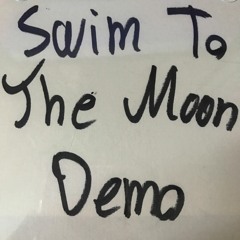 Swim To
The Moon
Demo